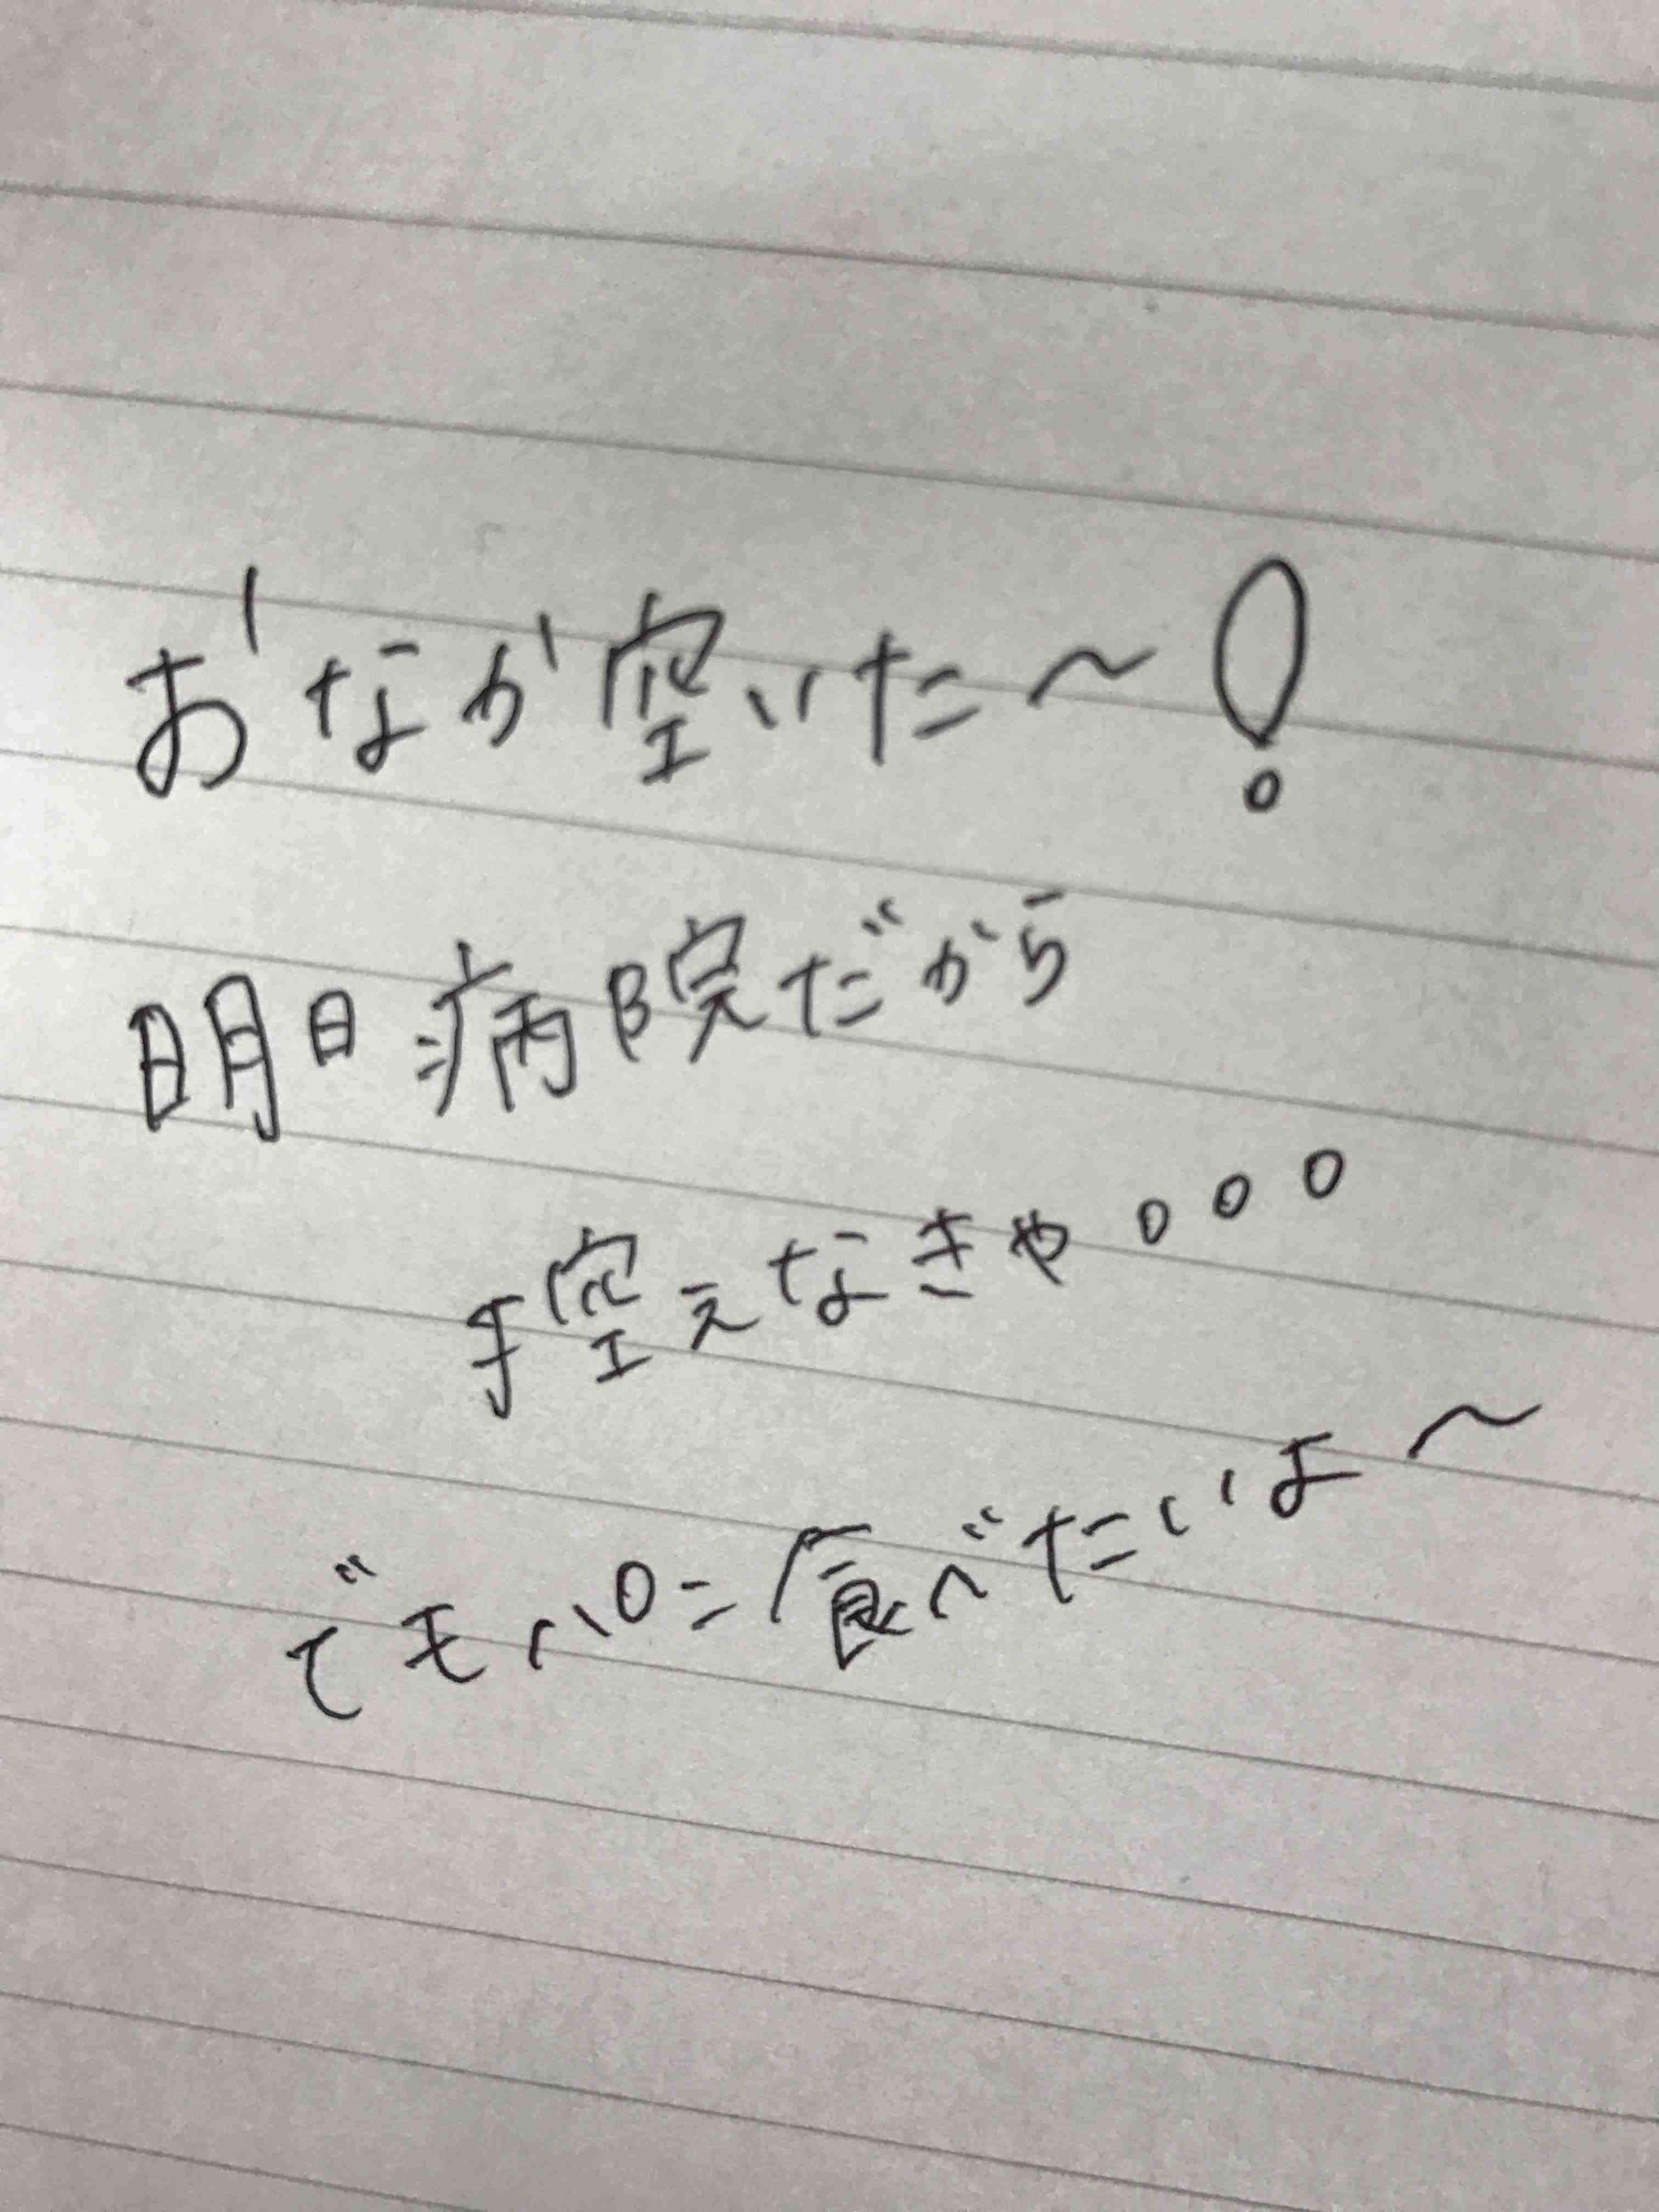 おなか空いた〜！
明日病院だから
控えなきゃ。。。
でもパコ食べたいよ〜